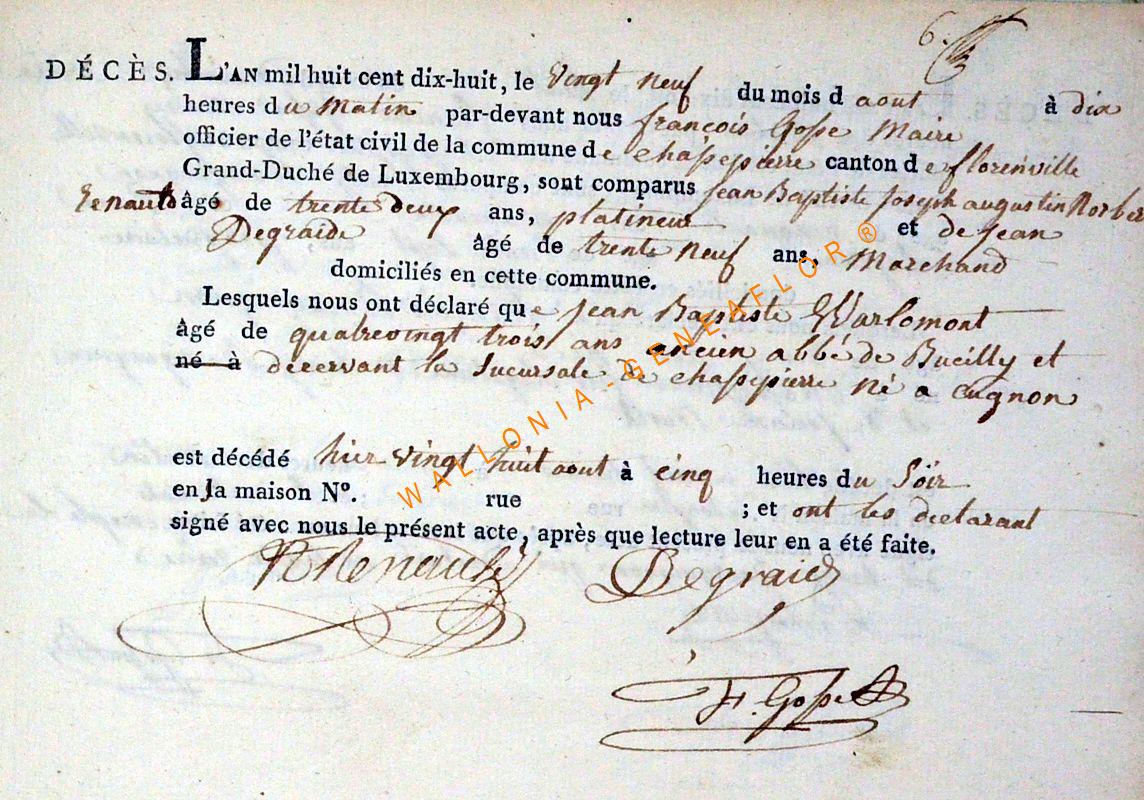 6.
DÉCÈS. L'AN mil huit cent dix-huit, le Vingt neuf du mois d aout à dix
heures du Matin par-devant nous françois Gosse Maire
officier de l'état civil de la commune de chassepierre canton de florenville
Grand-Duché de Luxembourg, sont comparus jean Baptiste joseph augustin Norbert
Renauld âgé de trente deux ans, platineur et de jean
Degraide âgé de trente neuf ans, Marchand
domiciliés en cette commune.
Lesquels nous ont déclaré que jean Baptiste Warlomont
âgé de quatrevingt trois ans ancien abbé de Bucilly et
né à decervant la Sucursale de chassepierre né a cugnon
est décédé hier vingt huit aout à cinq heures du Soir
en la maison N°. rue ; et ont les declarant
signé avec nous le présent acte, après que lecture leur en a été faite.
Degraide
F. Gosse
WALLONIA-GENEAFLOR®